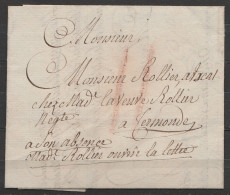 Monsieur
Monsieur Rollier avocat
chez Mad.e la veuve Rollier
Negte
a Termonde
a son absence
Mad.e Rollier ouvrir la lettre